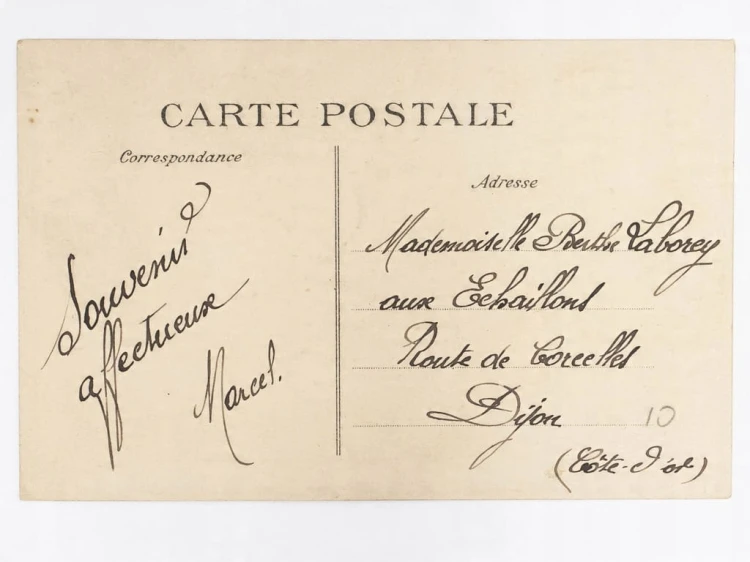 CARTE POSTALE
Correspondance
Souvenir
affectueux
Marcel.
Adresse
Mademoiselle Berthe Laborey
aux Echaillons
Route de Corcelles
Dijon
10
(Côte-d'or)